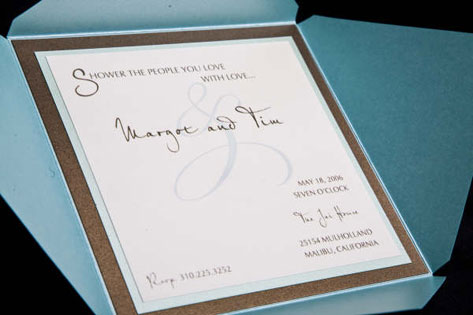 SHOWER THE PEOPLE YOU LOVE
WITH LOVE...
&
Margot and Tim
MAY 18, 2006
SEVEN O'CLOCK
The Jai House
25154 MULHOLLAND
MALIBU, CALIFORNIA
Rsvp. 310.225.3252